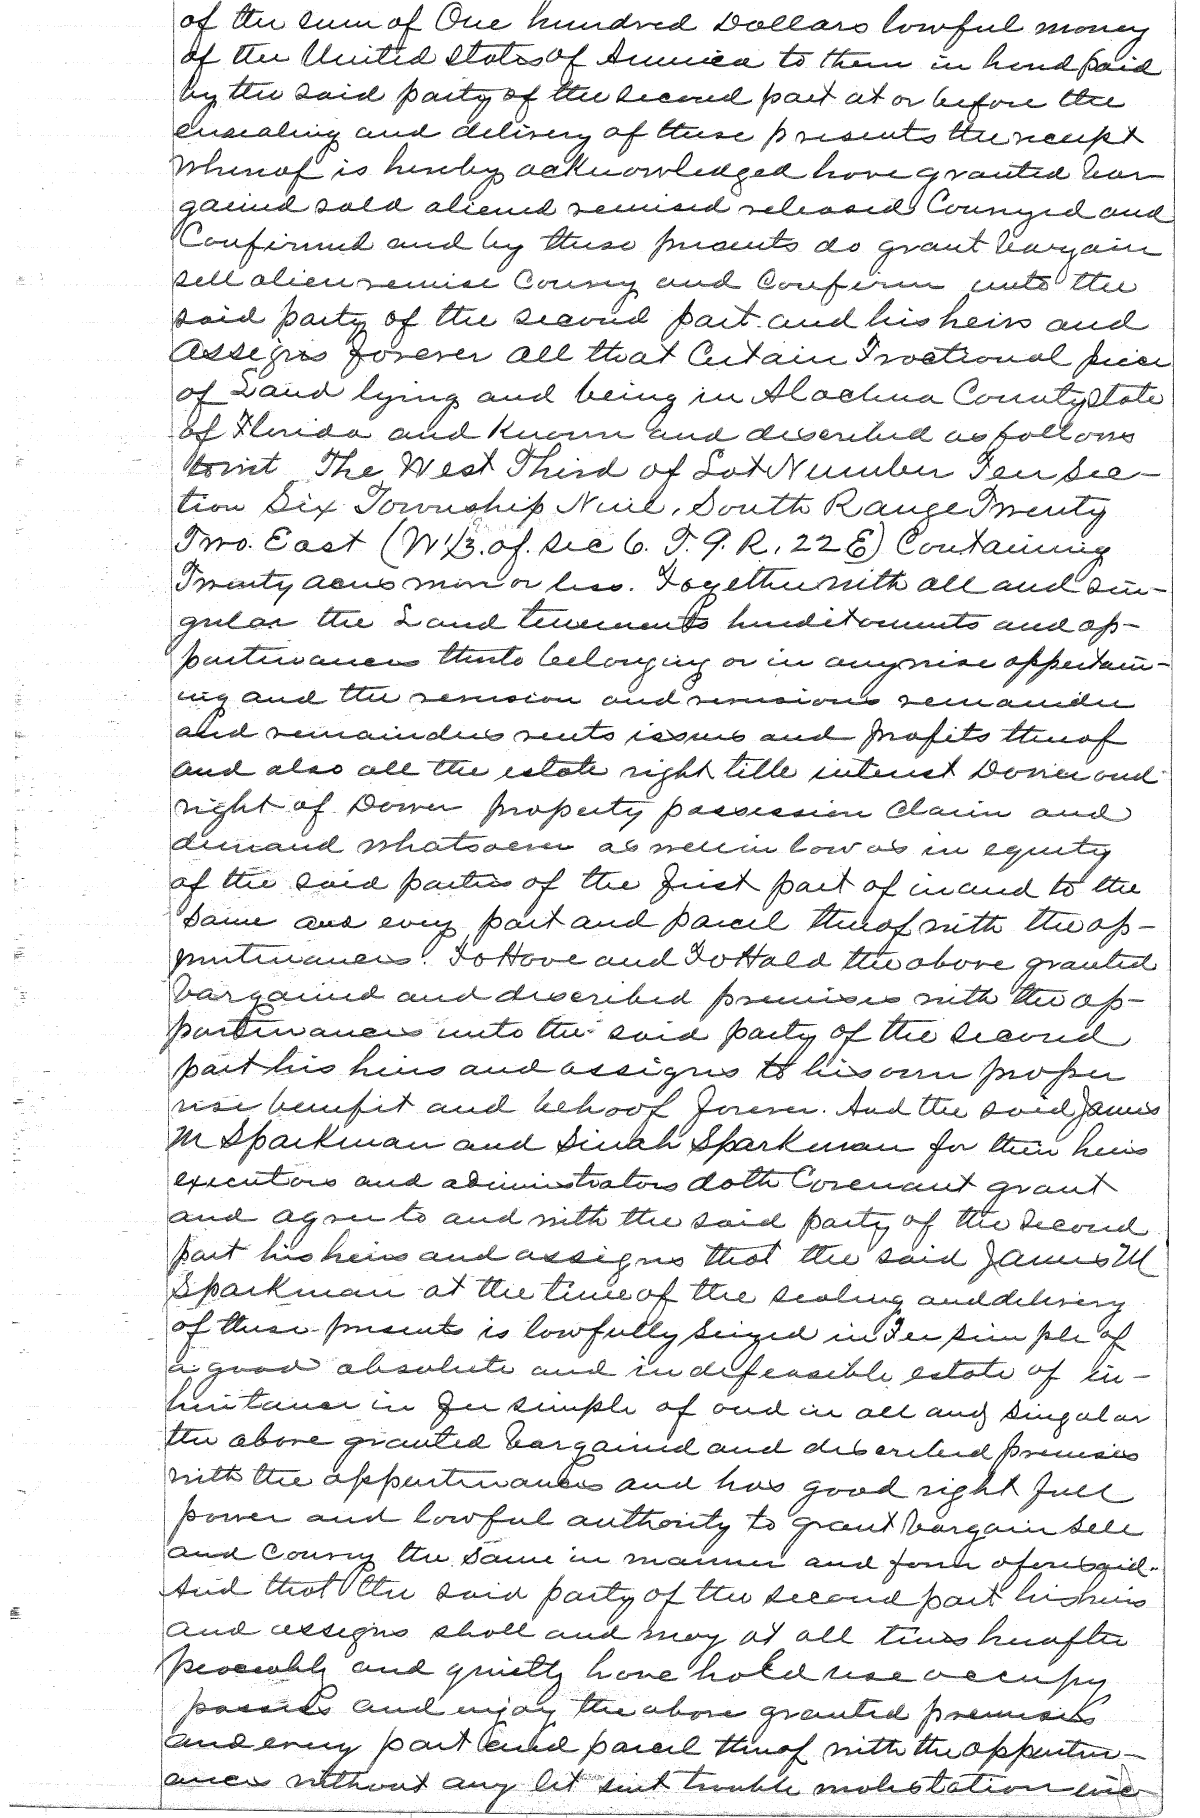 of the sum of One hundred Dollars lawful money
of the United States of America to them in hand paid
by the said party of the second part at or before the
ensealing and delivery of these presents the receipt
whereof is hereby acknowledged have granted bar-
gained sold aliened remised released Conveyed and
Confirmed and by these presents do grant bargain
sell alien remise Convey and Confirm unto the
said party of the second part and his heirs and
assigns forever all that Certain Fractional piece
of Land lying and being in Alachua County State
of Florida and Known and described as follows
towit The West Third of Lot Number Ten Sec-
tion Six Township Nine, South Range Twenty
Two. East (W 1/3. of. Sec 6. T. 9. R. 22 E) Containing
Twenty acres more or less. Together with all and sin-
gular the Land tenements hereditaments and ap-
purtenances thereto belonging or in anywise appertain-
ing and the reversion and reversions remainder
and remainders rents issues and profits thereof
and also all the estate right title interest Dower and
right of Dower property possession Claim and
demand whatsoever as well in law as in equity
of the said parties of the first part of in and to the
same and every part and parcel thereof with the ap-
purtenances. To Have and To Hold the above granted
bargained and described premises with the ap-
purtenances unto the said party of the second
part his heirs and assigns to his own proper
use benefit and behoof forever. And the said James
M Sparkman and Sinah Sparkman for their heirs
executors and administrators doth Covenant grant
and agree to and with the said party of the second
part his heirs and assigns that the said James M
Sparkman at the time of the sealing and delivery
of these presents is lawfully Seized in Fee simple of
a good absolute and indefeasible estate of in-
heritance in fee simple of and in all and singular
the above granted bargained and described premises
with the appurtenances and has good right full
power and lawful authority to grant bargain sell
and Convey the same in manner and form aforesaid.
And that the said party of the second part his heirs
and assigns shall and may at all times hereafter
peaceably and quietly have hold use occupy
possess and enjoy the above granted premises
and every part and parcel thereof with the appurten-
ances without any let suit trouble molestation evic